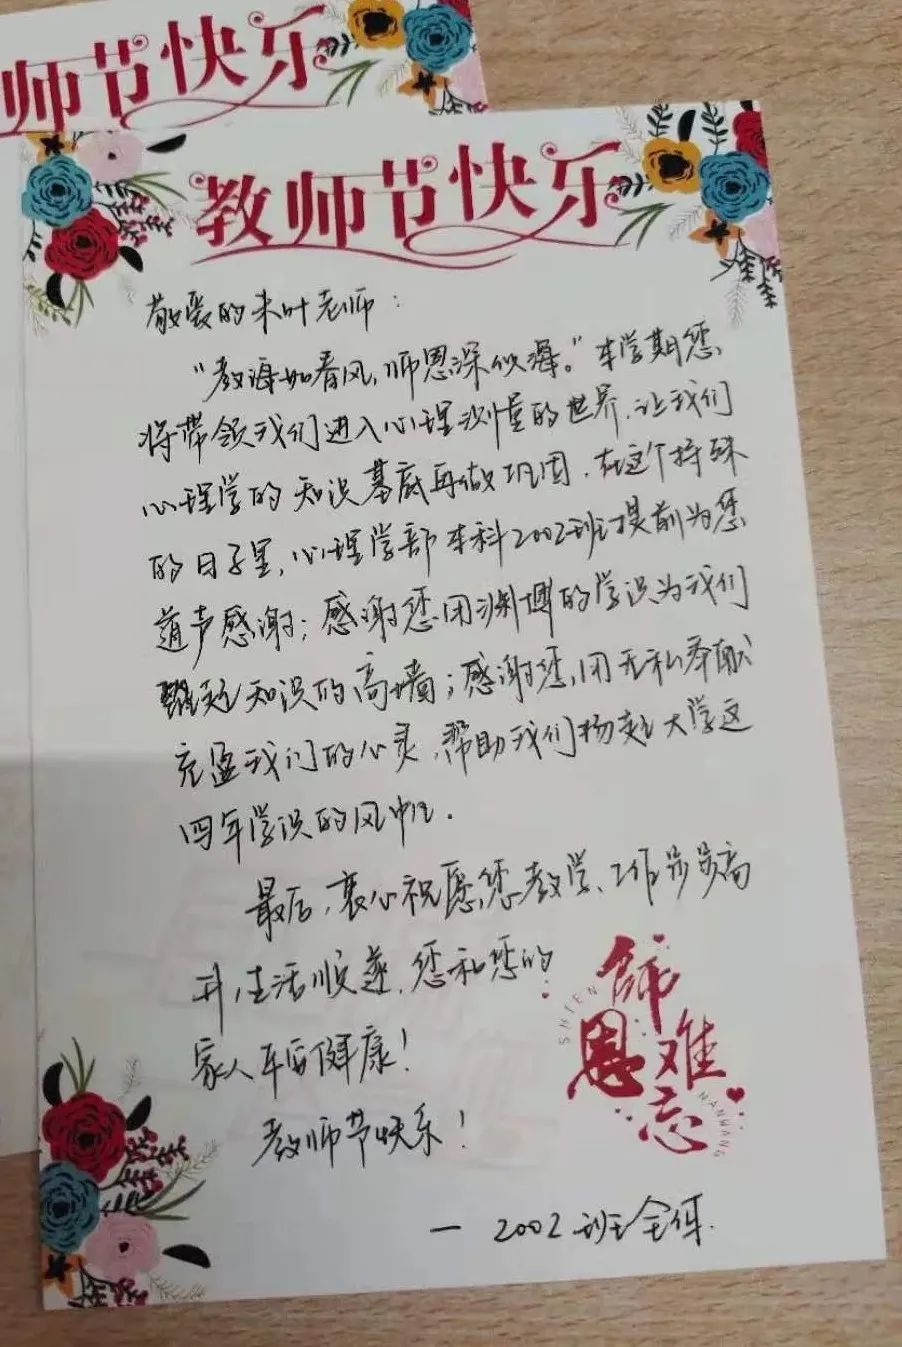 师节快乐
教师节快乐
敬爱的来叶老师：
“教诲如春风，师恩深似海。”本学期您
将带领我们进入心理测量的世界，让我们
心理学的知识基底再做巩固，在这个特殊
的日子里，心理学部本科2002班提前为您
道声感谢；感谢您用渊博的学识为我们
起知识的高墙；感谢您用无私奉献
充盈我们的心灵，帮助我们扬起大学这
四年学识的风帆．
最后，衷心祝愿您教学、工作步步高
升，生活顺遂，您和您的
家人平安健康！
教师节快乐！
— 2002班全体.
師恩难忘
SHIEN
NANWANG